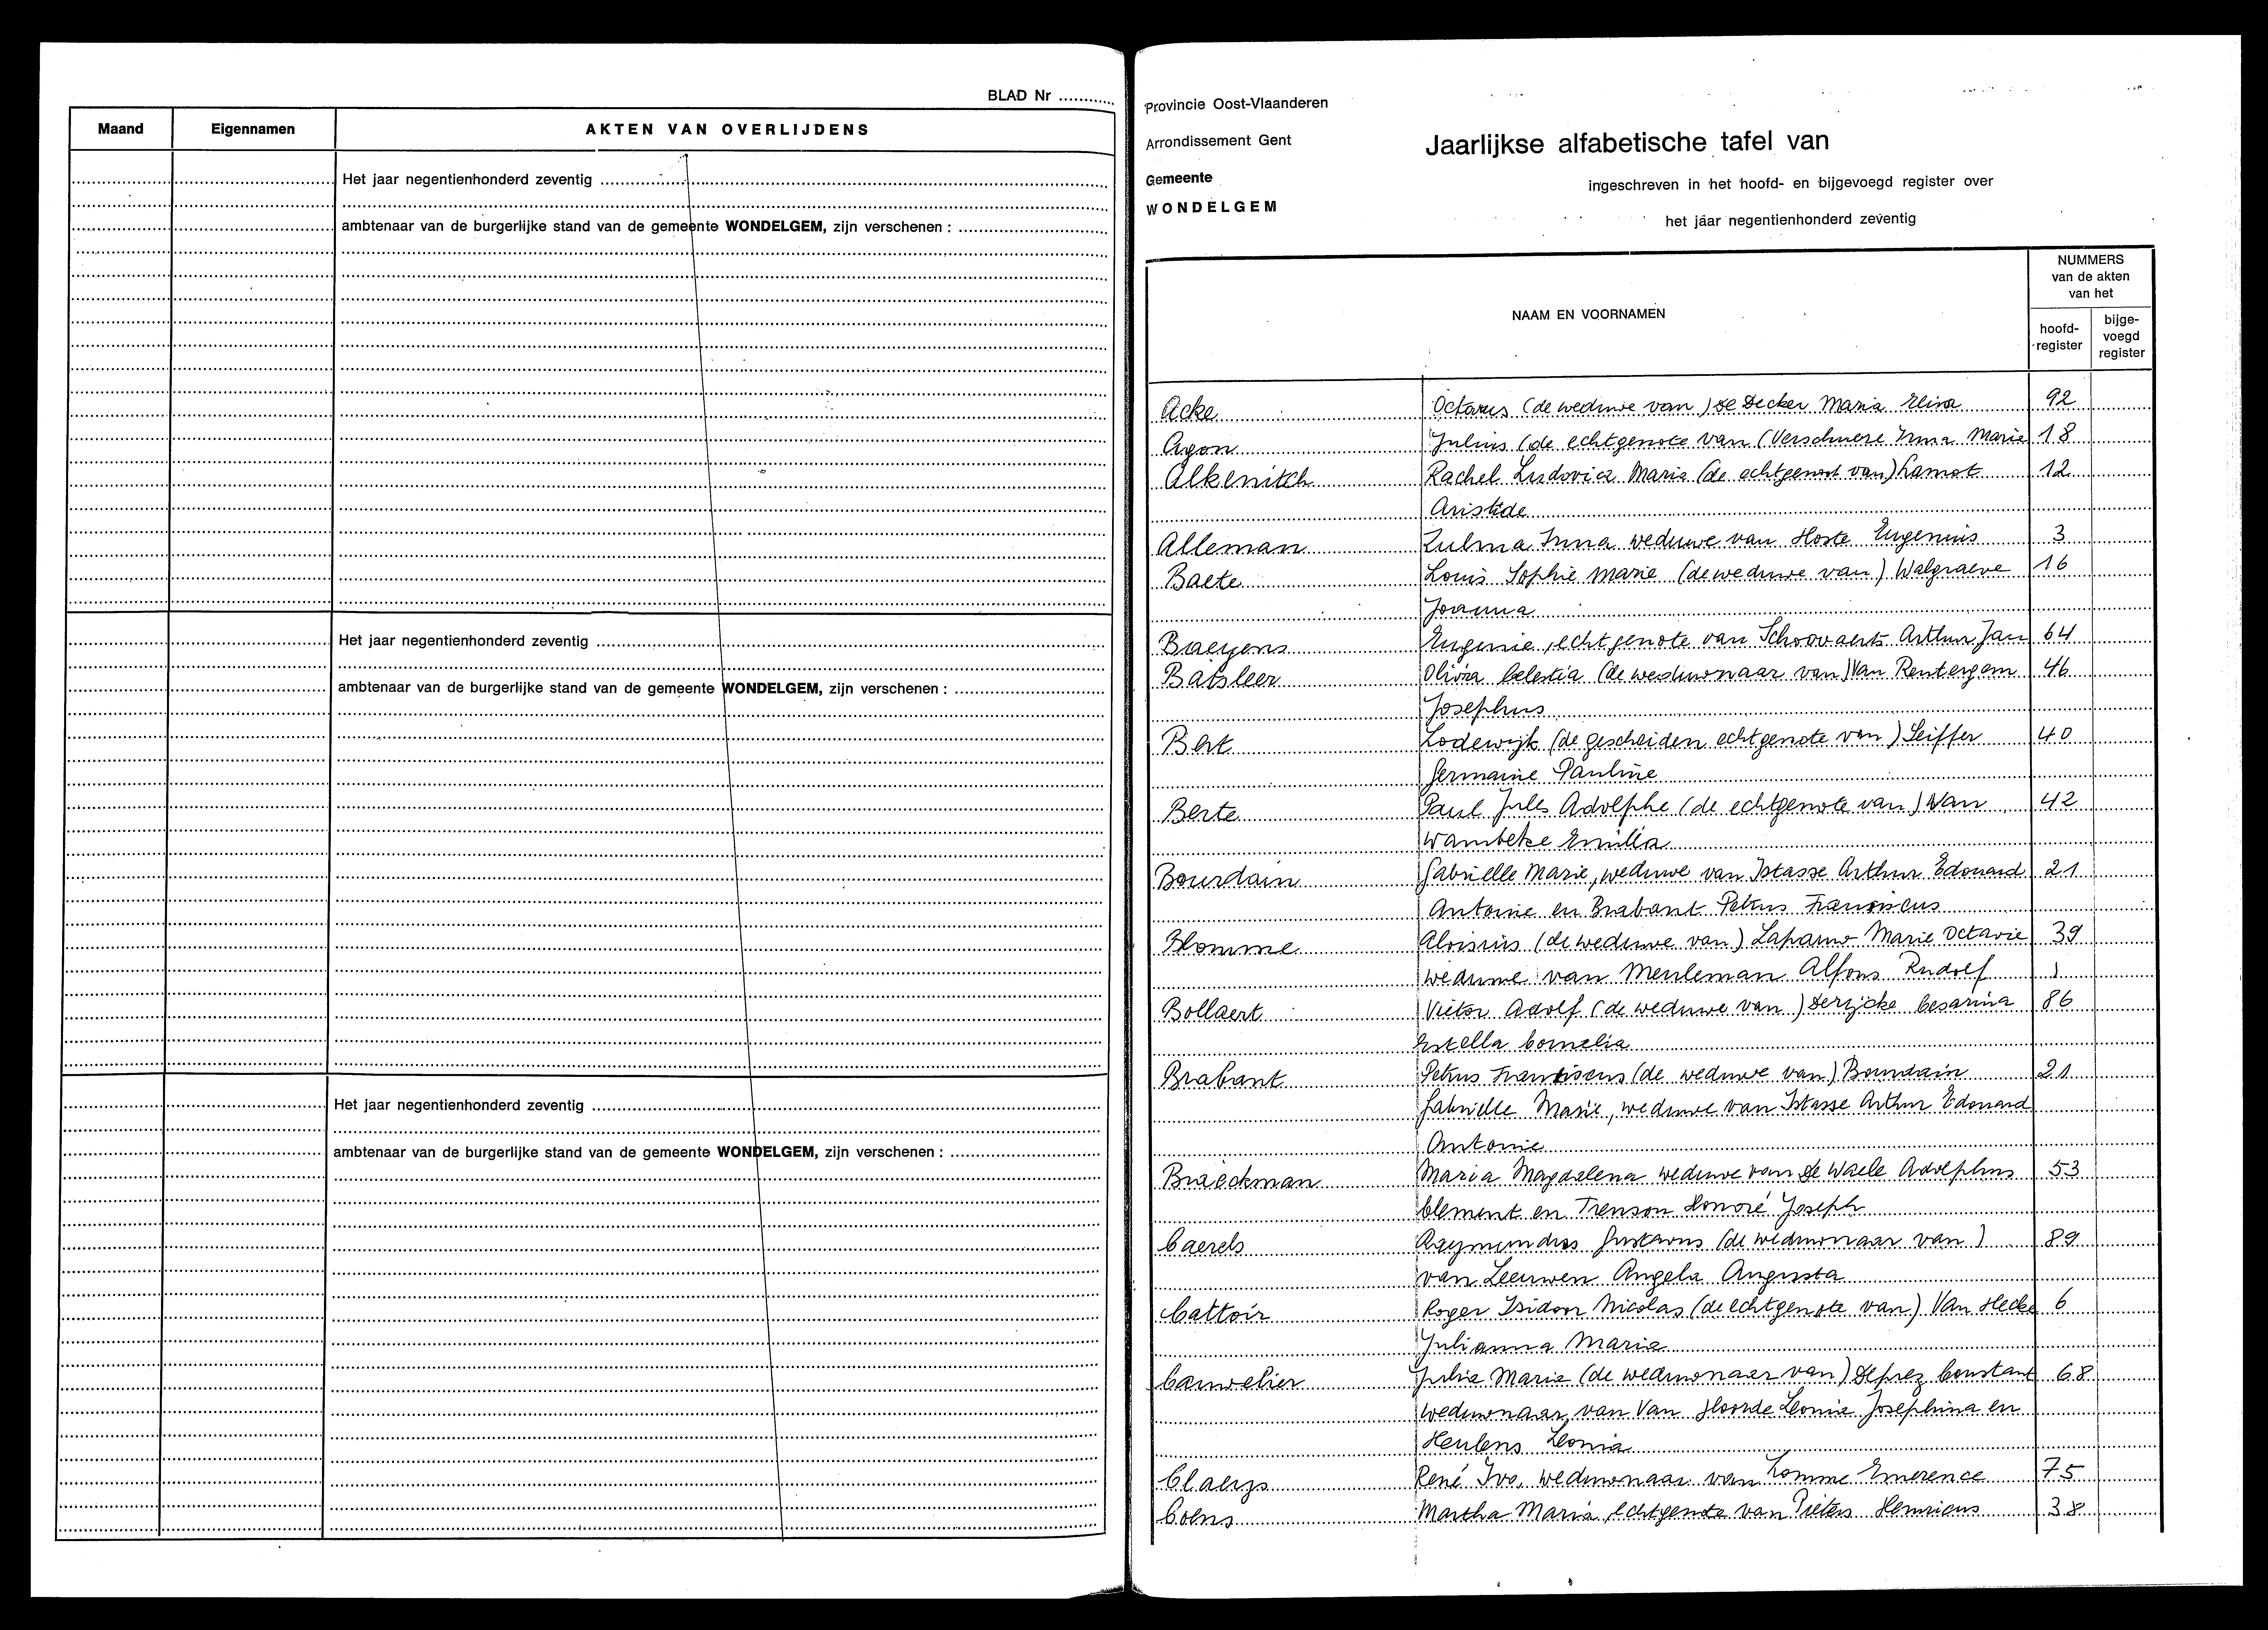 BLAD Nr ............
Maand Eigennamen AKTEN VAN OVERLIJDENS
Het jaar negentienhonderd zeventig
ambtenaar van de burgerlijke stand van de gemeente WONDELGEM, zijn verschenen :
Het jaar negentienhonderd zeventig
ambtenaar van de burgerlijke stand van de gemeente WONDELGEM, zijn verschenen :
Het jaar negentienhonderd zeventig
ambtenaar van de burgerlijke stand van de gemeente WONDELGEM, zijn verschenen :
Provincie Oost-Vlaanderen
Arrondissement Gent
Gemeente
WONDELGEM
Jaarlijkse alfabetische tafel van
ingeschreven in het hoofd- en bijgevoegd register over
het jaar negentienhonderd zeventig
NAAM EN VOORNAMEN
NUMMERS
van de akten
van het
hoofd-
register
bijge-
voegd
register
Acke Octavus (de weduwe van) De Decker Maria Elisa 92
Agon Julius (de echtgenote van (Verschuere Irma Marie 18
Alkenitch Rachel Ludovica Maria (de echtgenoot van) Lamot 12
Aristide
Alleman Zulma Irma weduwe van Hoste Eugenius 3
Baete Louis Sophie Marie (de weduwe van) Walgraeve 16
Joanna
Baeyens Eugenie, echtgenote van Schoovaerts Arthur Jan 64
Batsleer Olivia Celestia (de weduwnaar van) Van Rentergem 46
Josephus
Bert Lodewijk (de gescheiden echtgenote van) Seiffer 40
Germaine Pauline
Berte Paul Jules Adolphe (de echtgenote van) Van 42
Wambeke Emilia
Bourdain Gabrielle Marie, weduwe van Istasse Arthur Edouard 21
Antoine en Brabant Petrus Franciscus
Blomme Aloisius (de weduwe van) Lapauw Marie Octavie 39
weduwe van Meuleman Alfons Rudolf 1
Bollaert Victor Adolf (de weduwe van) Derijcke Cesarina 86
Estella Cornelia
Brabant Petrus Franciscus (de weduwe van) Bourdain 21
Gabrielle Marie, weduwe van Istasse Arthur Edouard
Antoine
Braeckman Maria Magdalena weduwe van De Waele Adolphus 53
Clement en Trenson Honoré Joseph
Caerels Raymundus Gustavus (de weduwnaar van) 89
van Leeuwen Angela Augusta
Cattoir Roger Isidoor Nicolas (de echtgenote van) Van Hecke 6
Julianna Maria
Cauwelier Julia Maria (de weduwnaar van) Deprez Constant 68
weduwnaar van Van Hoorde Leonia Josephina en
Heulens Leonia
Claeys René Ivo, weduwnaar van Lomme Emerence 75
Coens Martha Maria, echtgenote van Pieters Henricus 38